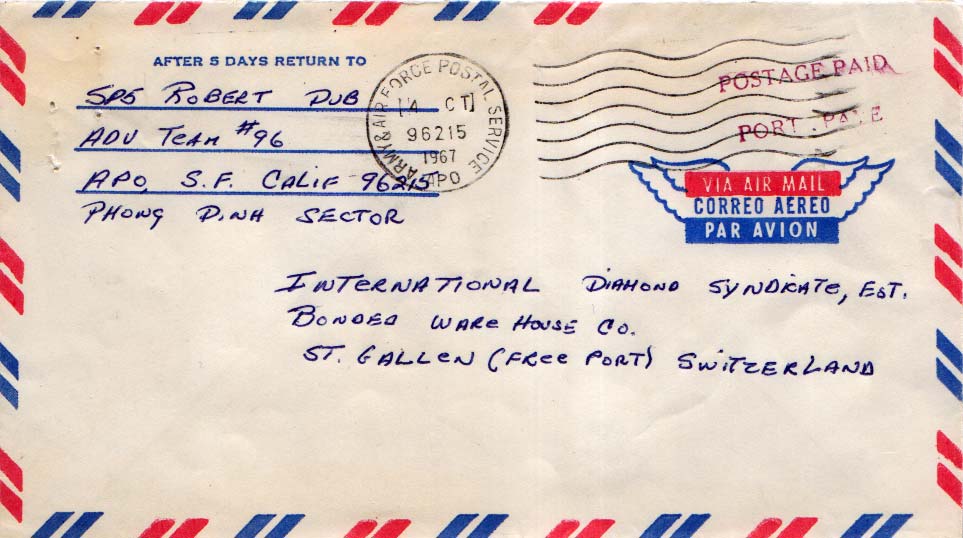 AFTER 5 DAYS RETURN TO
SP5 ROBERT DUB
ADV TEAM #96
APO, S.F. CALIF 96215
PHONG DINH SECTOR
ARMY & AIR FORCE POSTAL SERVICE
APO
14 OCT
96215
1967
POSTAGE PAID
PORT PAYE
VIA AIR MAIL
CORREO AÉREO
PAR AVION
INTERNATIONAL DIAMOND SYNDICATE, EST.
BONDED WARE HOUSE CO.
ST. GALLEN (FREE PORT) SWITZERLAND